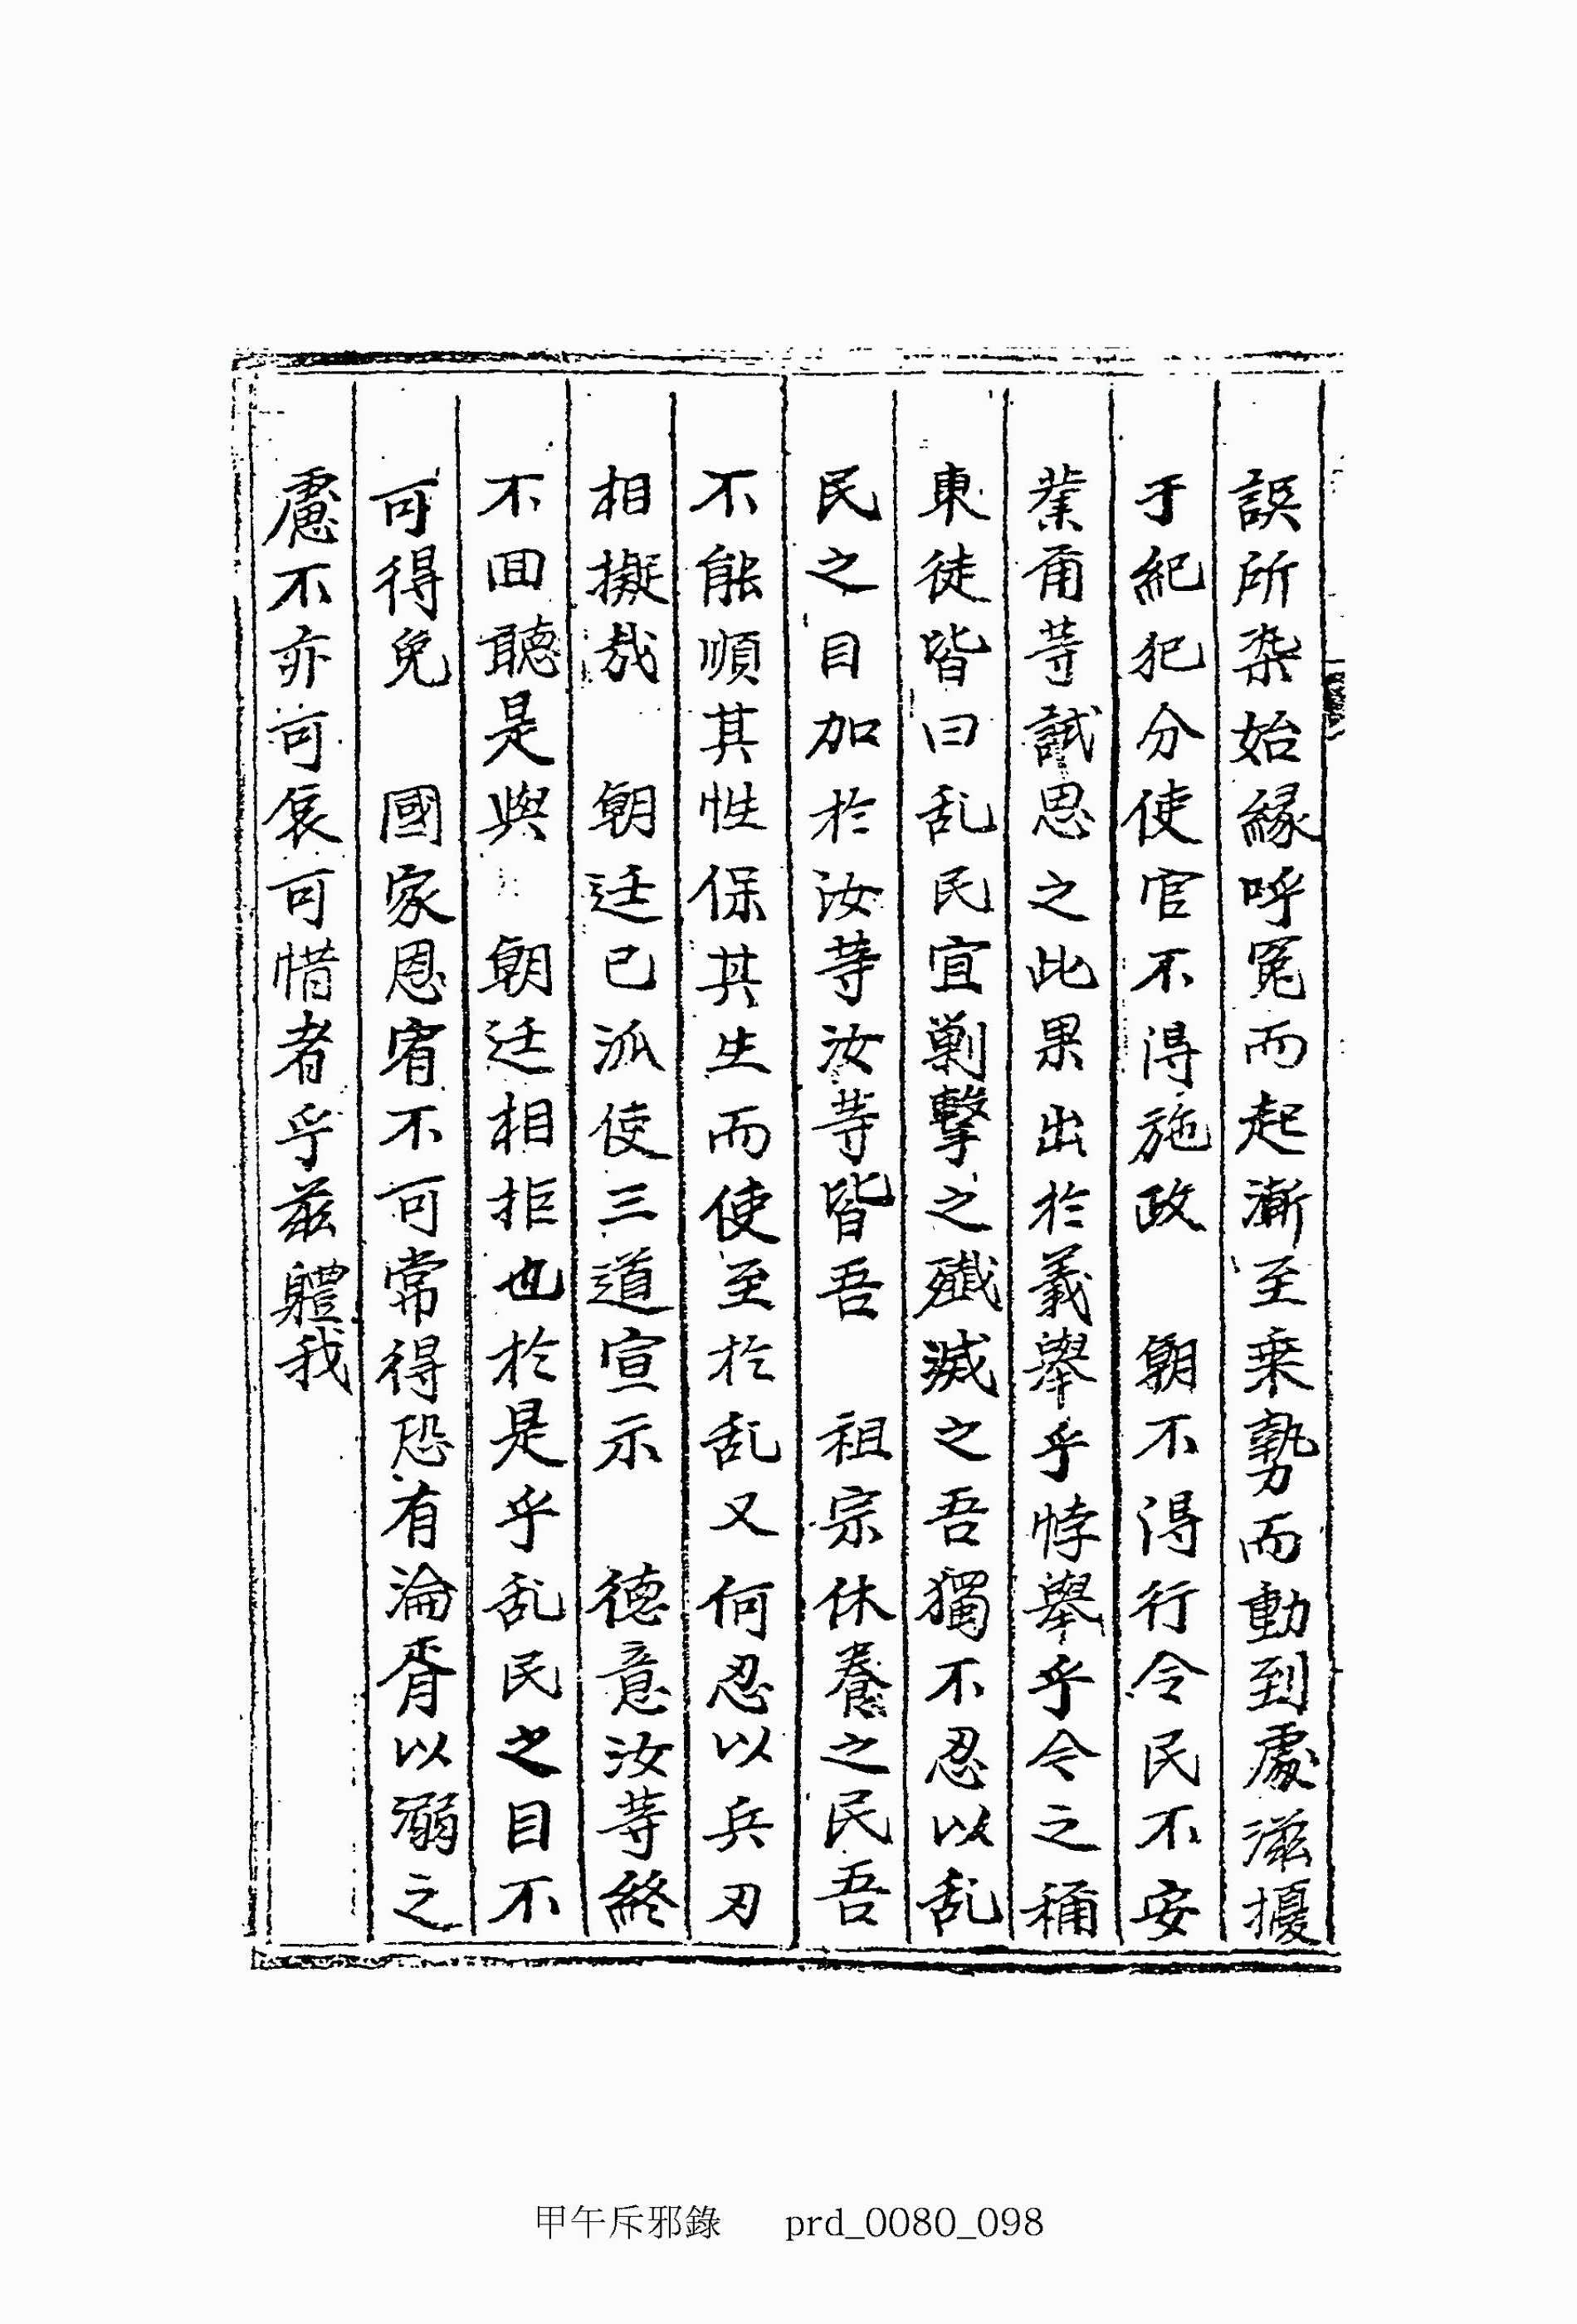 誤所染始緣呼冤而起漸至乗勢而動到處滋擾
于紀犯分使官不得施政　朝不得行令民不安
業甭等試思之此果出於義擧乎悖擧乎令之稱
東徒皆曰乱民宜剿擊之殱滅之吾獨不忍以乱
民之目加於汝等汝等皆吾　祖宗休養之民吾
不能順其性保其生而使至於乱又何忍以兵刃
相擬哉　朝廷已派使三道宣示　德意汝等終
不回聽是與　朝廷相拒也於是乎乱民之目不
可得免　國家恩宥不可常得恐有淪胥以溺之
慮不亦可哀可惜者乎兹軆我
甲午斥邪錄　prd_0080_098